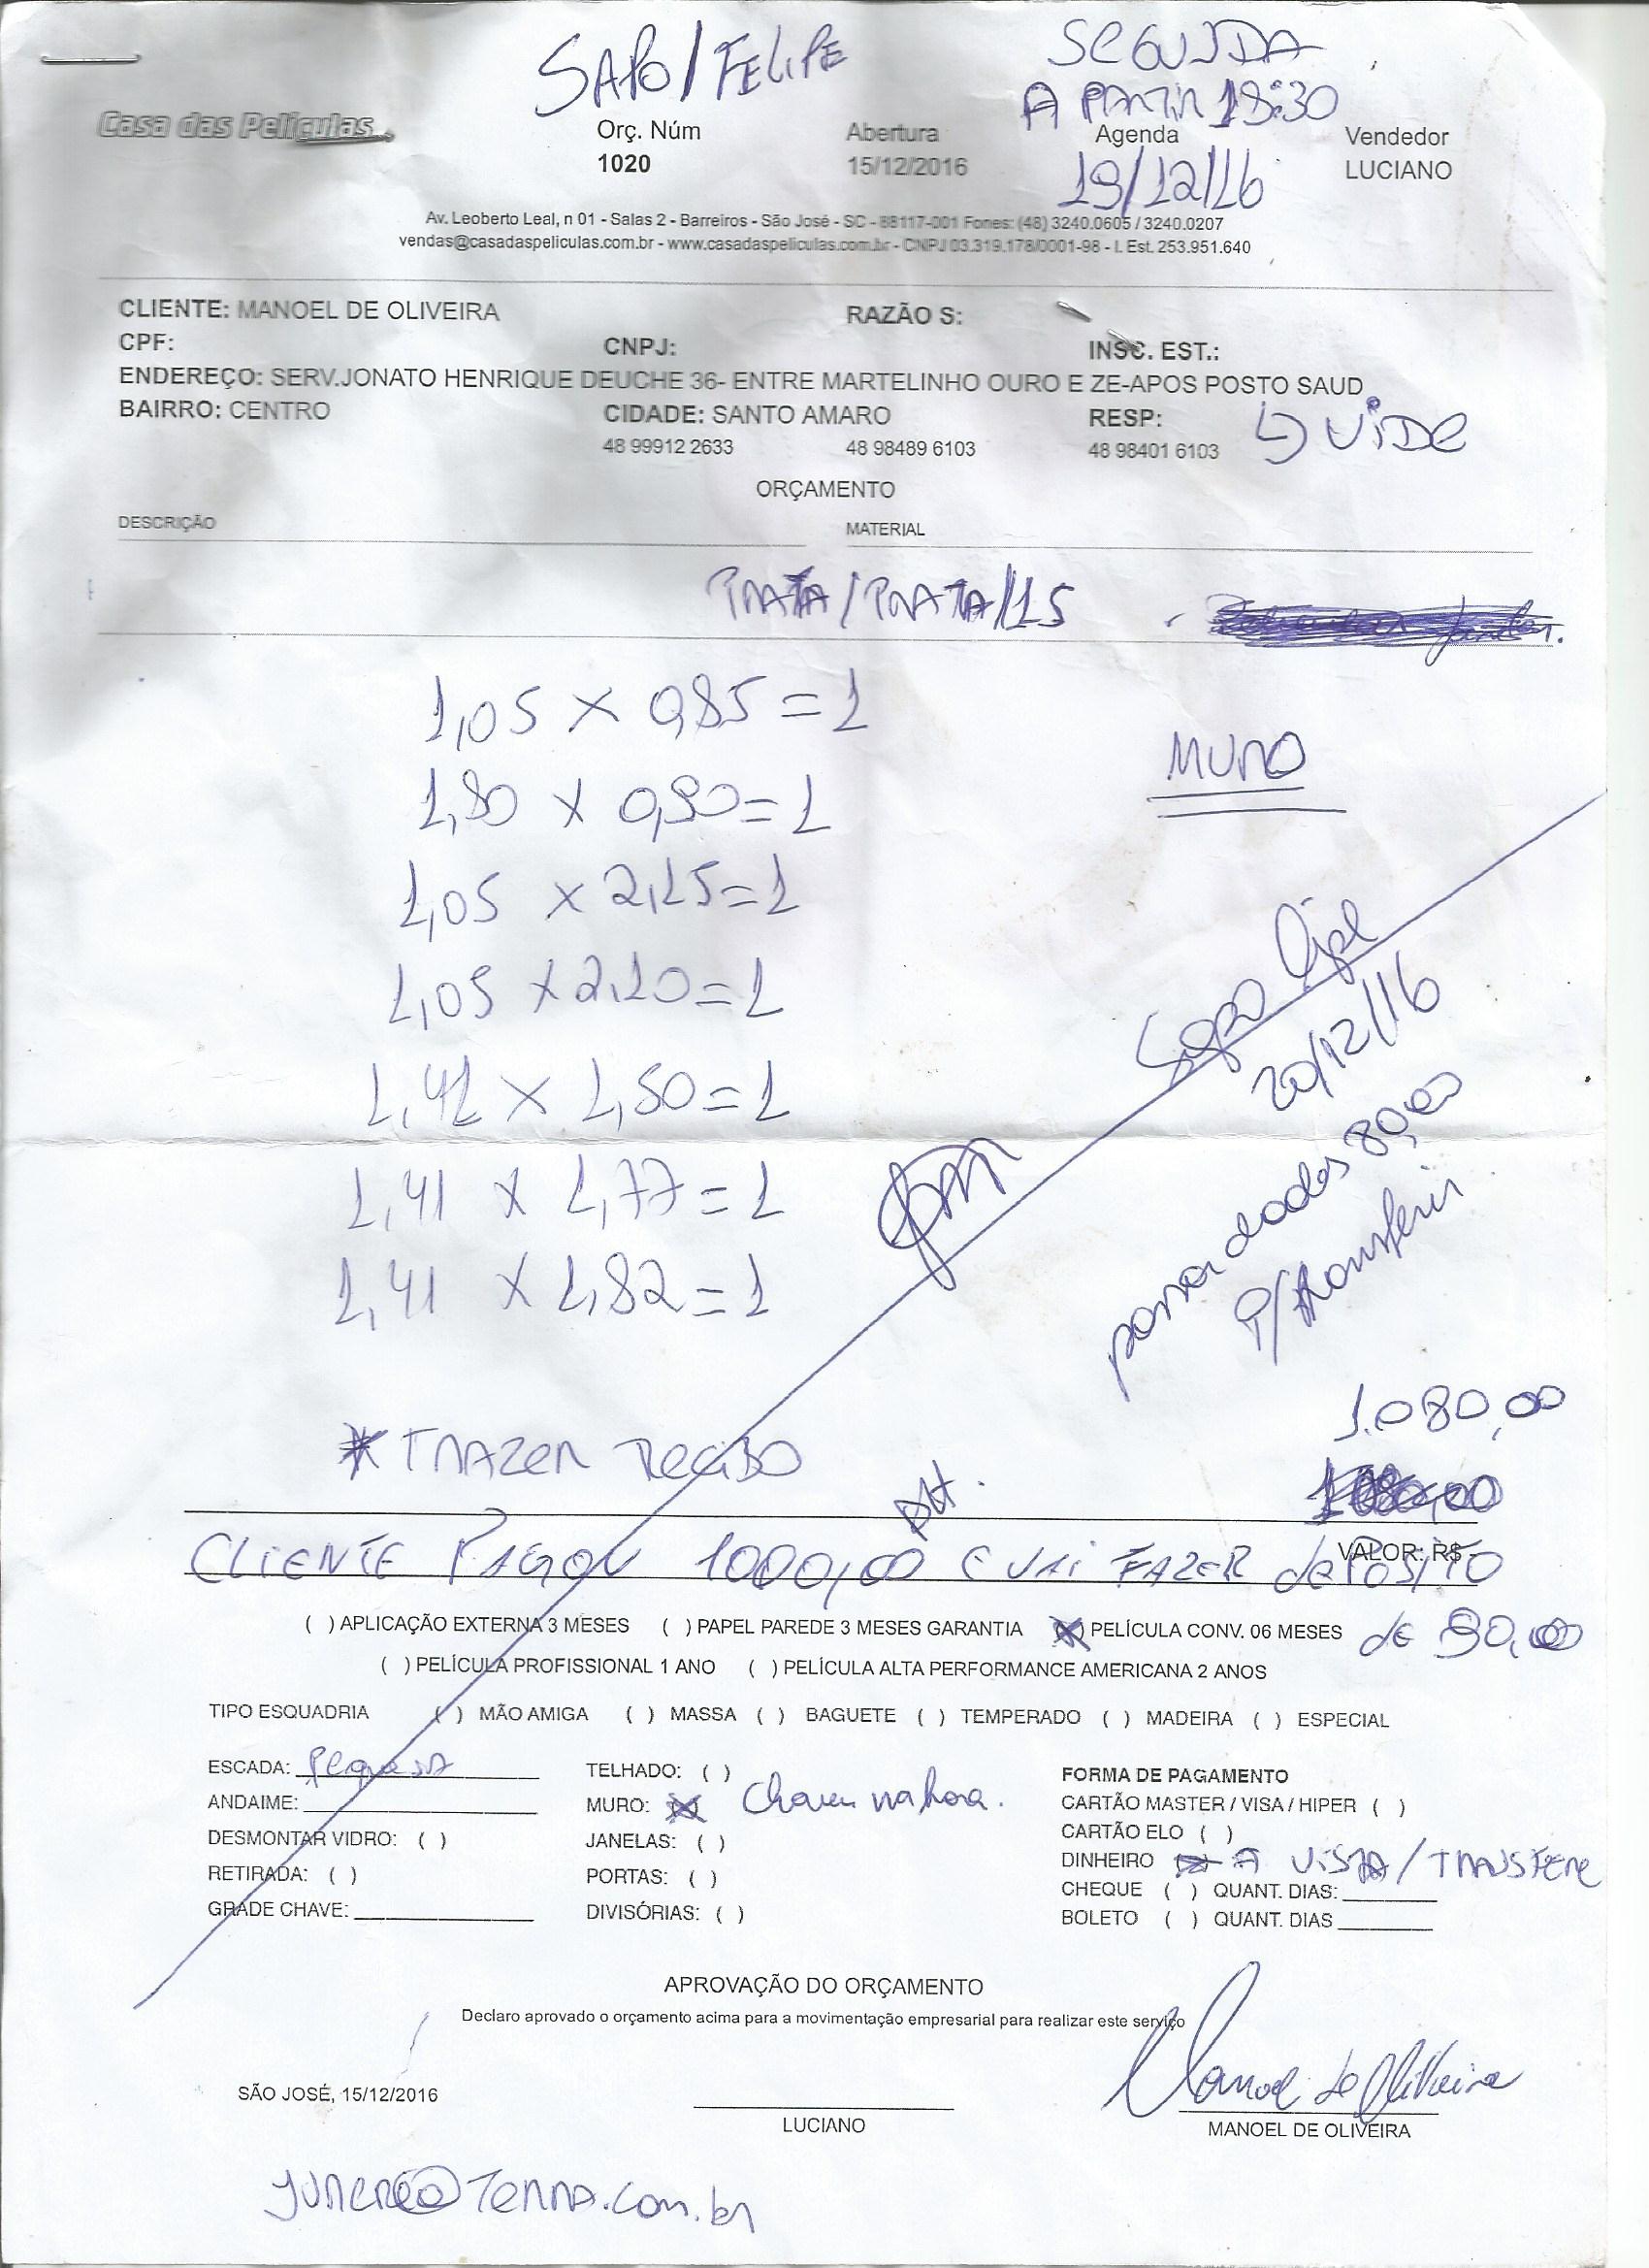 SAPO/FELIPE
SEGUNDA
A PARTIR 13:30
Casa das Películas
Orç. Núm
1020
Abertura
15/12/2016
Agenda
19/12/16
Vendedor
LUCIANO
Av. Leoberto Leal, n 01 - Salas 2 - Barreiros - São José - SC - 88117-001 Fones: (48) 3240.0605 / 3240.0207
vendas@casadaspeliculas.com.br - www.casadaspeliculas.com.br - CNPJ 03.319.178/0001-98 - I. Est. 253.951.640
CLIENTE: MANOEL DE OLIVEIRA RAZÃO S:
CPF: CNPJ: INSC. EST.:
ENDEREÇO: SERV.JONATO HENRIQUE DEUCHE 36- ENTRE MARTELINHO OURO E ZE-APOS POSTO SAUD
BAIRRO: CENTRO CIDADE: SANTO AMARO RESP:
48 99912 2633 48 98489 6103 48 98401 6103 VIDE
ORÇAMENTO
DESCRIÇÃO MATERIAL
PRATA/PRATA/15
1,05 x 0,85 = 1
MURO
1,80 x 0,90 = 1
1,05 x 2,15 = 1
1,05 x 2,10 = 1
1,41 x 1,80 = 1
1,41 x 1,77 = 1
1,41 x 1,82 = 1
Sapo
20/12/16
passar dados 80,00
p/transferir
1.080,00
* TRAZER RECIBO
VALOR: R$
CLIENTE PAGOU 1000,00 E VAI FAZER dePÓSITO
de 80,00
( ) APLICAÇÃO EXTERNA 3 MESES ( ) PAPEL PAREDE 3 MESES GARANTIA (X) PELÍCULA CONV. 06 MESES
( ) PELÍCULA PROFISSIONAL 1 ANO ( ) PELÍCULA ALTA PERFORMANCE AMERICANA 2 ANOS
TIPO ESQUADRIA ( ) MÃO AMIGA ( ) MASSA ( ) BAGUETE ( ) TEMPERADO ( ) MADEIRA ( ) ESPECIAL
ESCADA: Pequena TELHADO: ( ) FORMA DE PAGAMENTO
ANDAIME: MURO: (X) CARTÃO MASTER / VISA / HIPER ( )
DESMONTAR VIDRO: ( ) JANELAS: ( ) CARTÃO ELO ( )
RETIRADA: ( ) PORTAS: ( ) DINHEIRO A VISTA / TRANSFERE
GRADE CHAVE: DIVISÓRIAS: ( ) CHEQUE ( ) QUANT. DIAS:
BOLETO ( ) QUANT. DIAS
APROVAÇÃO DO ORÇAMENTO
Declaro aprovado o orçamento acima para a movimentação empresarial para realizar este serviço
SÃO JOSÉ, 15/12/2016
Manoel de Oliveira
LUCIANO MANOEL DE OLIVEIRA